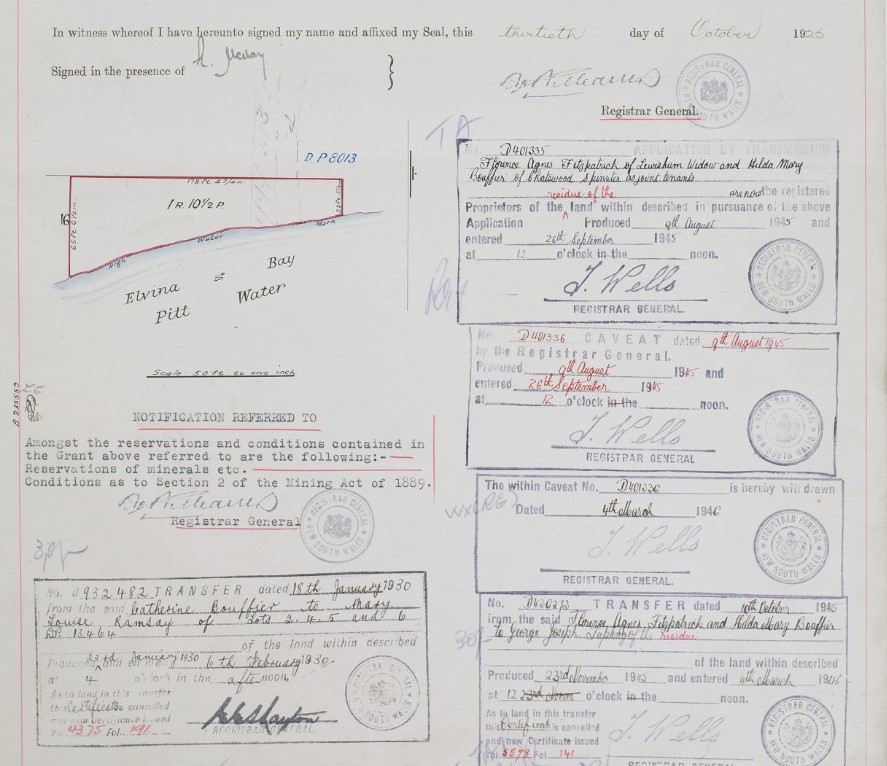 In witness whereof I have hereunto signed my name and affixed my Seal, this thirtieth day of October 1925
Signed in the presence of
Registrar General.
D.P 8013
178 Ft.
1 R. 10½ P
16
65 Ft 6½ in
High Water Mark
Elvina Bay
Pitt Water
Scale:- 50 ft to one inch
NOTIFICATION REFERRED TO
Amongst the reservations and conditions contained in
the Grant above referred to are the following:-
Reservations of minerals etc.
Conditions as to Section 2 of the Mining Act of 1889.
Registrar General
REGISTRAR GENERAL
NEW SOUTH WALES
No. B932482 TRANSFER dated 18th January 1930
from the said Catherine Bouffier to Mary
Louise Ramsay of Lots 2. 4. 5 and 6
D.P. 13464
of the land within described
Produced 23rd January 1930 and entered 6th February 1930
at 4 o'clock in the afternoon.
As to land in this transfer
this Certificate is cancelled
and new Certificate issued
Vol. 4375 Fol. 191
REGISTRAR GENERAL
TA
No. D401335 APPLICATION BY TRANSMISSION
Florence Agnes Fitzpatrick of Lewisham Widow and Hilda Mary
Bouffier of Chatswood Spinster as joint tenants
are now the registered
Proprietors of the residue of the land within described in pursuance of the above
Application Produced 9th August 1945 and
entered 26th September 1945
at 12 o'clock in the noon.
J. Wells
REGISTRAR GENERAL.
No. D401336 CAVEAT dated 9th August 1945
by the Registrar General.
Produced 9th August 1945 and
entered 26th September 1945
at 12 o'clock in the noon.
J. Wells
REGISTRAR GENERAL
The within Caveat No. D401336 is hereby withdrawn
Dated 4th March 1946
J. Wells
REGISTRAR GENERAL.
No. TRANSFER dated 10th October 1945
from the said Florence Agnes Fitzpatrick and Hilda Mary Bouffier
to George Joseph of the residue
of the land within described
Produced 23rd November 1945 and entered 4th March 1946
at 12 o'clock in the noon.
As to land in this transfer
this Certificate is cancelled
and new Certificate issued
Vol. 5578 Fol 141
J. Wells
REGISTRAR GENERAL